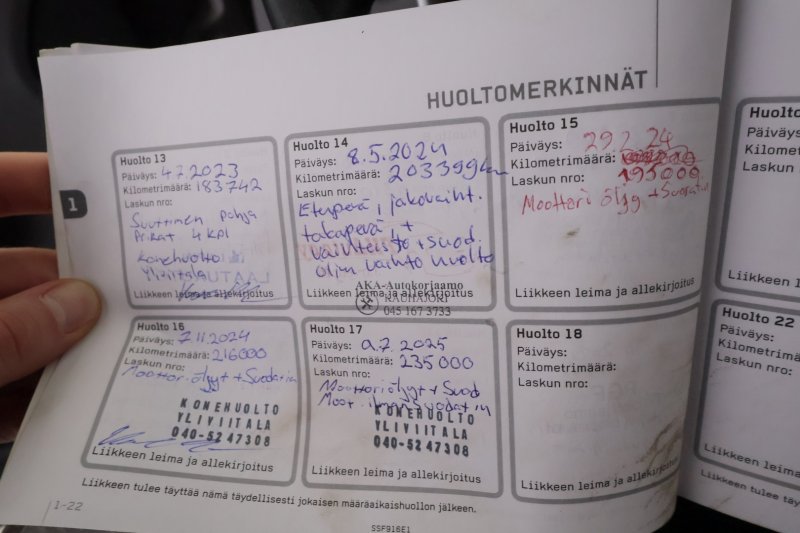 HUOLTOMERKINNÄT
1
Huolto 13
Päiväys: 4.7.2023
Kilometrimäärä: 183742
Laskun nro:
Suuttimen pohja
Prikat 4 kpl
Konehuolto
Yliviitala
Liikkeen leima ja allekirjoitus
Huolto 14
Päiväys: 8.5.2024
Kilometrimäärä: 203399km
Laskun nro:
Etuperä, jakovaiht.
takaperä +
vaihteisto + suod.
öljyn vaihto huolto
AKA-Autokorjaamo
RAUHAJORI
045 167 3733
Liikkeen leima ja allekirjoitus
Huolto 15
Päiväys: 29.2.24
Kilometrimäärä:
Laskun nro: 195000
Moottori öljy + Suodatin
Liikkeen leima ja allekirjoitus
Huolto 16
Päiväys: 7.11.2024
Kilometrimäärä: 216000
Laskun nro:
Moottori öljyt + Suodatin
KONEHUOLTO
YLIVIITALA
040-5247308
Liikkeen leima ja allekirjoitus
Huolto 17
Päiväys: 9.7.2025
Kilometrimäärä: 235000
Laskun nro:
Moottoriöljyt + Suod
Moot. ilmansuodatin
KONEHUOLTO
YLIVIITALA
040-5247308
Liikkeen leima ja allekirjoitus
Huolto 18
Päiväys:
Kilometrimäärä:
Laskun nro:
Liikkeen leima ja allekirjoitus
Liikkeen tulee täyttää nämä täydellisesti jokaisen määräaikaishuollon jälkeen.
1-22
SSF916E1
Päiväys:
Laskun nro:
Liikkeen leima
Huolto 22
Päiväys:
Laskun nro:
Liikkeen leima
Liikkeen tulee täyttää